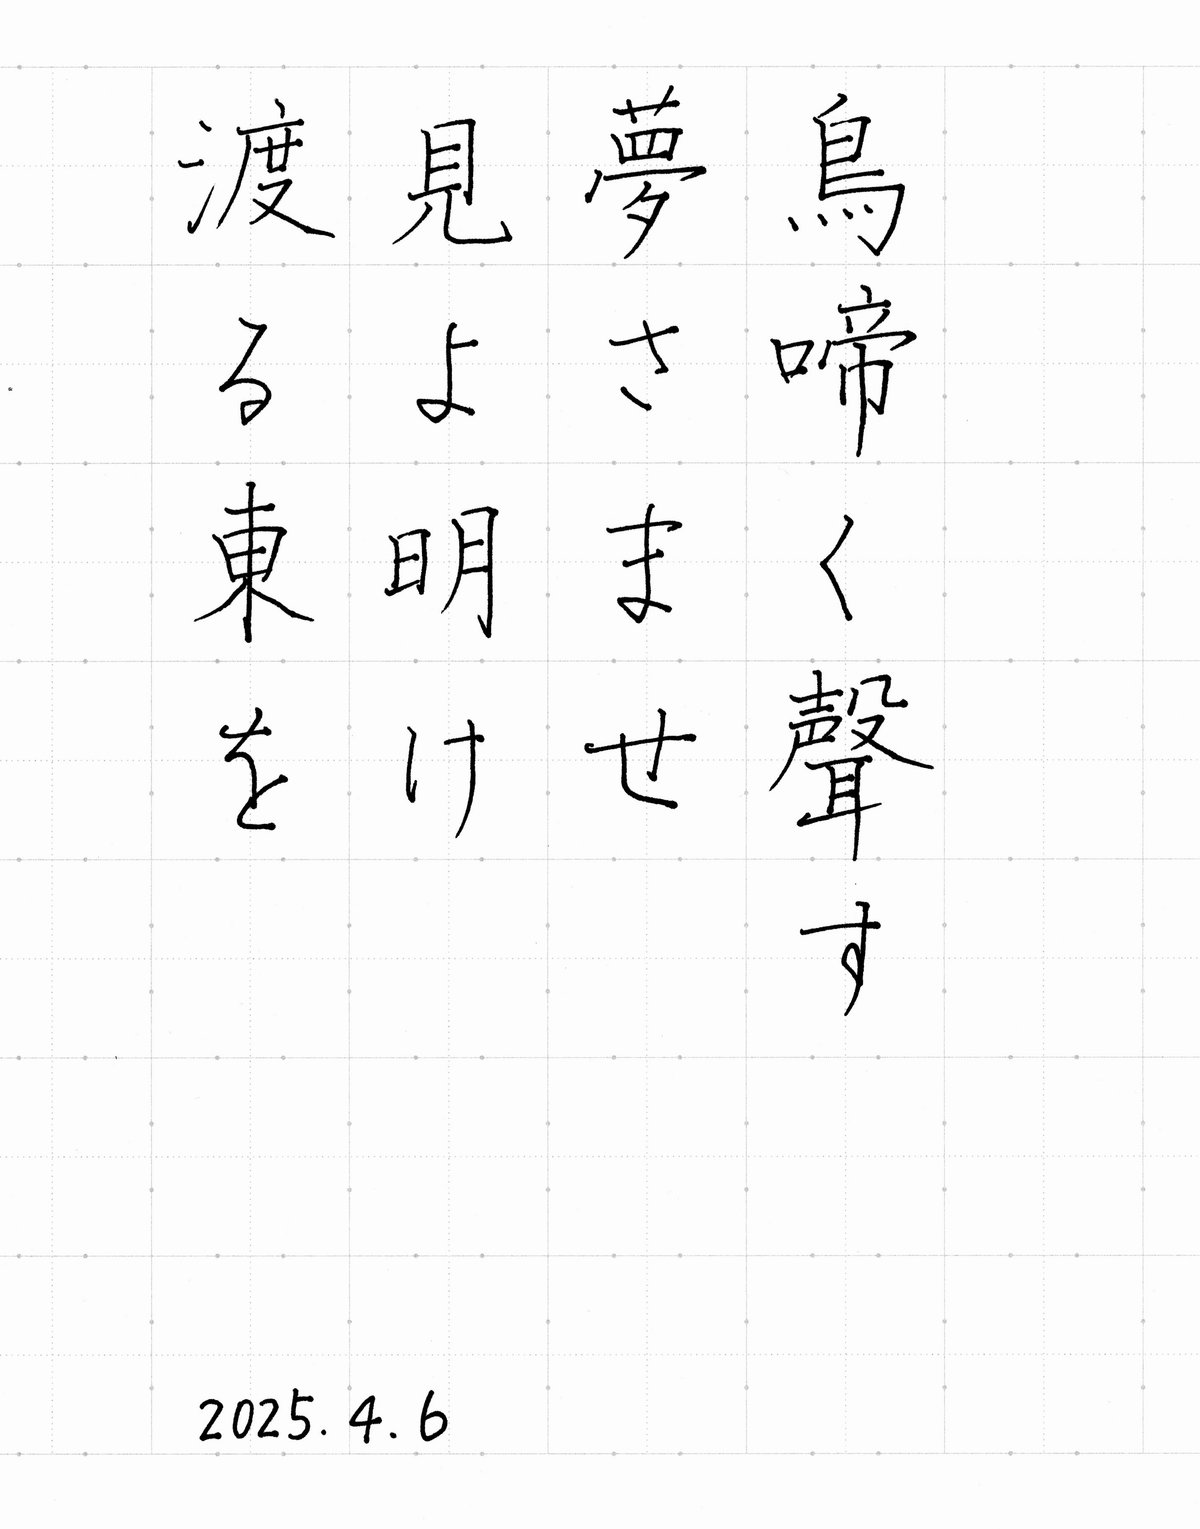 鳥啼く聲す
夢さませ
見よ明け
渡る東を
2025.4.6